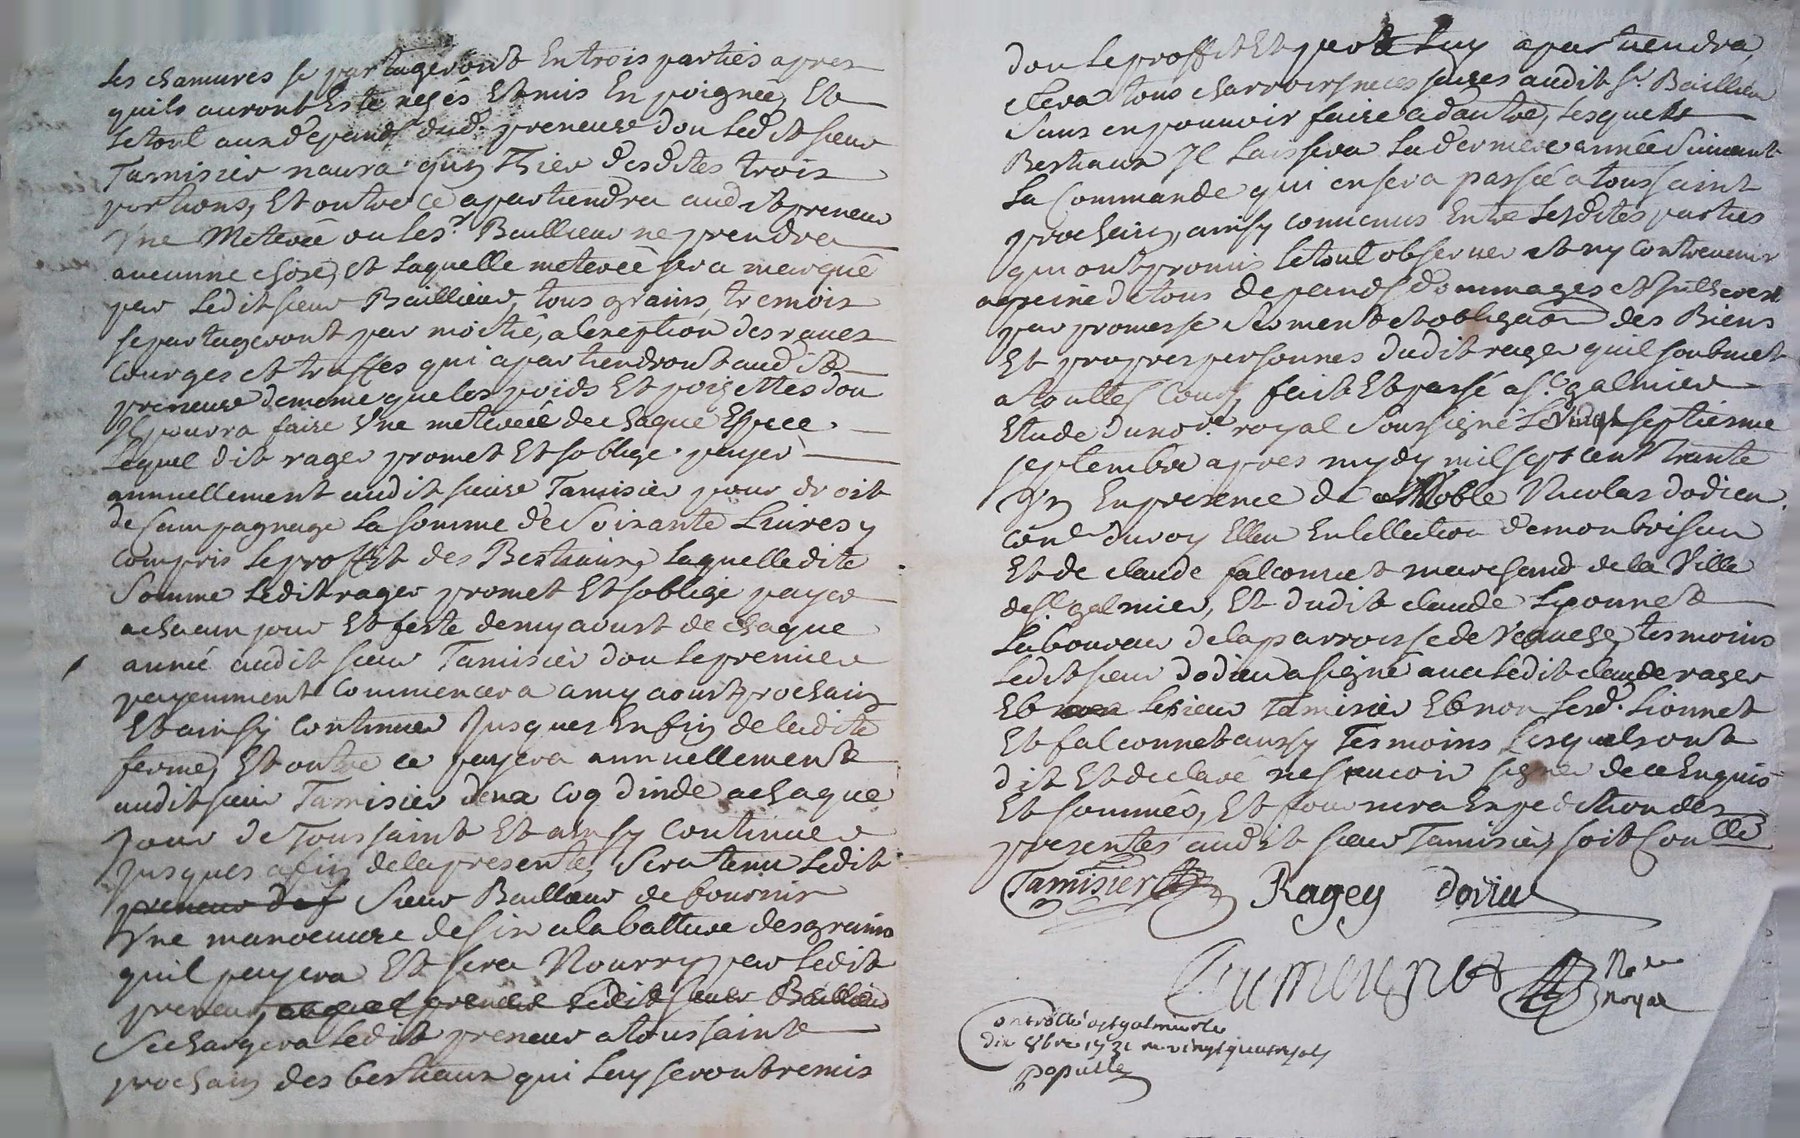 Les chanvres se partageront En trois parties apres
quils auront Esté neses Et mis En poignée, Et
Le tout aux dépands dud. preneur dou Ledit sieur
Tamisier naura quun Thier desdites trois
portions, Et outre ce apartiendra audit preneur
Vne Meterée ou le sr. Baillieur ne prendra
aucunne chose, et Laquelle meterée sera marqué
par Ledit sieur Baillieur, tous grains, tremois
se partageront par moitié, a lexeption des raves
Courges et truffes qui apartiendront audit
preneur de meme que les poids Et poizettes dou
Il pourra faire Vne meterée de chaque Espece.
Lequel dit ragey promet Et soblige payer
annuellement audit sieur Tamisier pour droit
de Campagnage La somme de Soixante Livres y
Compris Le proffit des Bestiaux, Laquelle dite
Somme Ledit ragey promet Et soblige payer
a chacun jour Et feste de my aoust de chaque
année audit sieur Tamisier dou Le premier
payemment Commencera a my aoust prochain
Et ainsy Continuer Jusques En fin de ladite
ferme, Et outre ce payera annuellement
audit sieur Tamisier deux Coq dinde a chaque
Jour de Toussaint Et ainsy Continuer
Jusques a fin de la presente, Sera tenu Ledit
preneur d Sieur Bailleur de fournir
Vne manoeuvre de sin a la batture des grains
quil payera Et sera Nourry par Ledit
preneur, Ledit sieur Baillieur
Se chargera Ledit preneur a toussainte
prochain des bestiaux qui Luy seront remis
dou Le proffit Et perte Luy apartiendra,
fera tous charroirs necessaires audit sr. Baillieur
Sans en pouvoir faire a dautre, Lesquels
Bestiaux Il Laissera La derniere année Suivant
La Commande qui en sera passée a toussaint
prochain, ainsy convenus Entre Lesdites parties
qui ont promis Le tout observer et ny contrevenir
a peine de tous depands dommages et jnthérest
par promesse serment et obligaon des Biens
Et propres personnes dudit ragey quil soubmet
a touttes Cours, fait Et passé a St. galmier
Etude du nore. royal Soussigné Le vingt septieme
septembre apres mydy mil sept cent trante
Vn En presence de Noble Nicolas dodieu
conr. du roy Elleu En Lellection de montbrison
Et de claude falconnet marchand de la Ville
de St galmier, Et dudit claude Lyonnet
Laboureur de la parroisse de tesmoins
Ledit sieur dodieu a signé avec Ledit claude ragey
Et Le sieur Tamisier Et non Lesd. Lionnet
Et falconnet aussy Tesmoins Lesquels ont
dit Et declaré ne sçavoir signer de ce Enquis
Et sommés, Et fournira Expedition des
presentes audit sieur Tamisier, soit Conllé
Tamisier Ragey Dodieu
No re
royal
Controllé a st galmier le
dix 8bre 1731 r vingt quatre sols